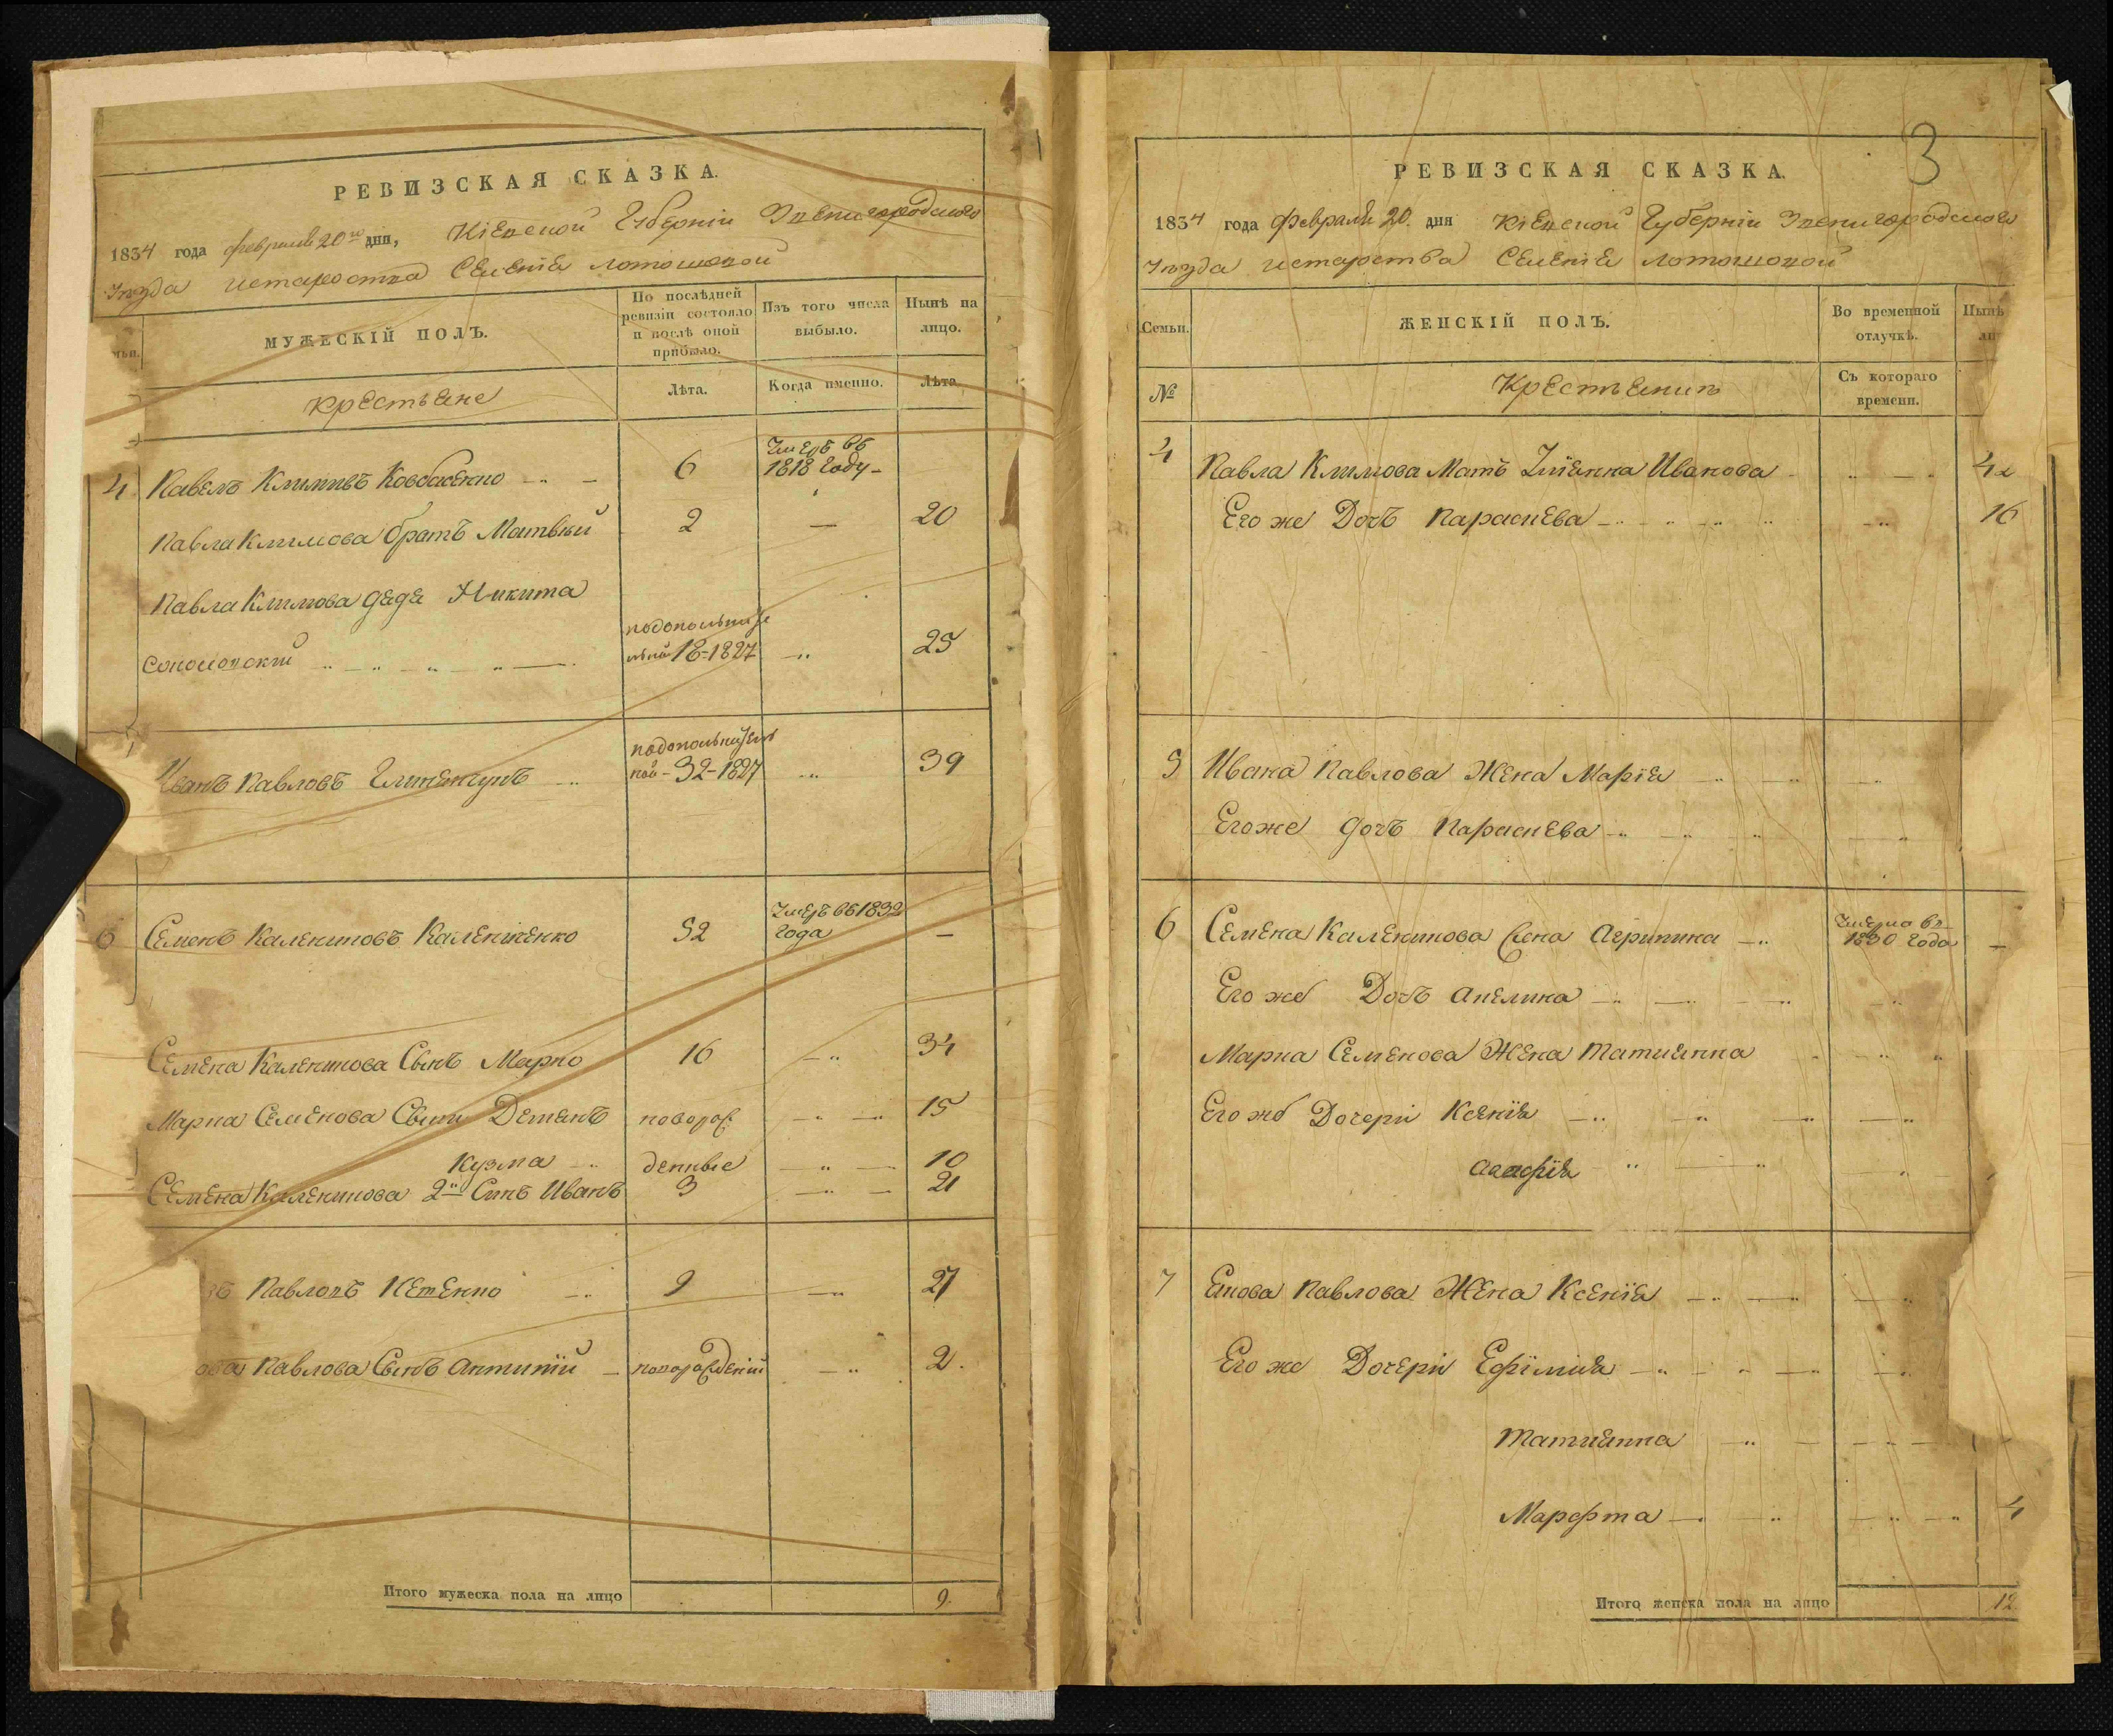 РЕВИЗСКАЯ СКАЗКА.
1834 года февраля 20го дня, Кіевской Губерніи Звенигородского
уезда и староства Селенія Лотошовой
МУЖЕСКІЙ ПОЛЪ.
По послѣдней ревизіи состояло и послѣ оной прибыло.
Изъ того числа выбыло.
Нынѣ на лицо.
Крестьяне
Лѣта.
Когда именно.
Лѣта
4 Павелъ Климовъ Ковбасенко 6 Умеръ въ 1818 Году
Павла Климова братъ Матвѣй 2 — 20
Павла Климова дядя Никита
18-1827 25
Иванъ Павловъ 32-1827 39
6 Семенъ Калениковъ Каленіченко 52 Умеръ въ 1832 Года —
Семена Каленикова Сынъ Марко 16 34
Марка Семенова Сыни Деменъ новорож 15
Кузма денные 10
Семена Каленикова 2й Синъ Иванъ 3 21
Павловъ 9 27
ова Павлова Сынъ Антипій новорожденій 2.
Итого мужеска пола на лицо 9.
3
РЕВИЗСКАЯ СКАЗКА.
1834 года Февраля 20. дня Кіевской Губерніи Звенигородского
уезда и староства Селенія Лотошовой
Семьи.
ЖЕНСКІЙ ПОЛЪ.
Во временной отлучкѣ.
Нынѣ
№
Съ котораго времени.
4 Павла Климова Мать Ивановa 42
Его же Дочь Параскева 16
5 Ивана Павлова Жена Марія
Его же дочь Параскева
6 Семена Каленикова Агрипина Умерла въ 1830 Года —
Его же Дочь Акелина
Марка Семенова Жена Татиянна
Его же Дочери Ксенія
Агафія
7 Якова Павлова Жена Ксенія
Его же Дочери Ефімия
Татиянна
Марфта 4
Итого женска пола на лицо 12